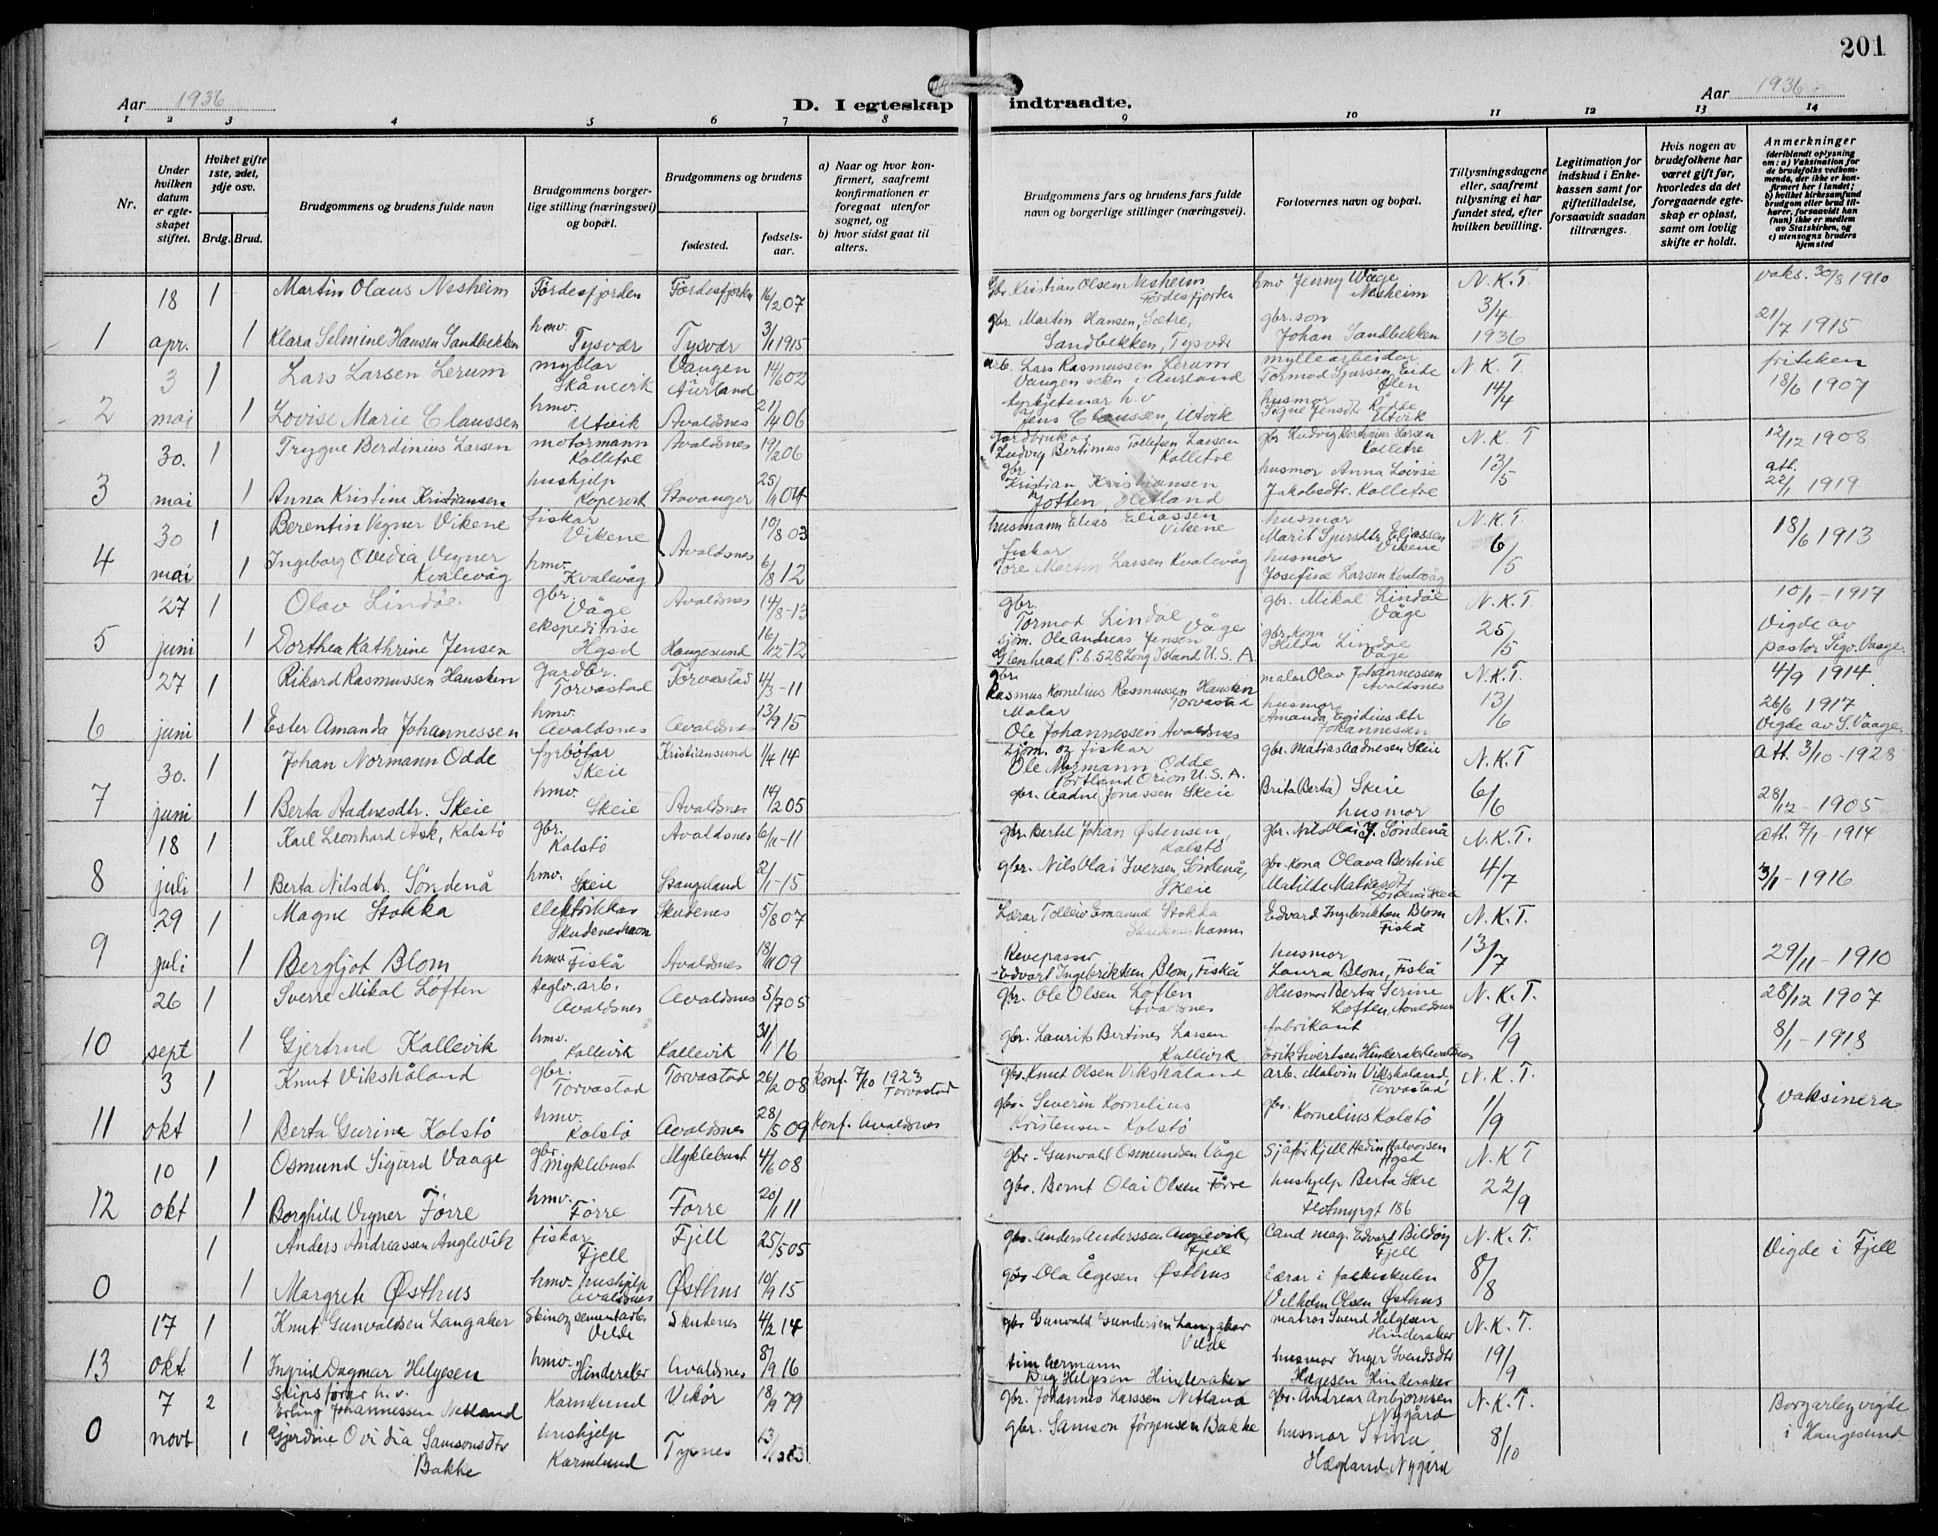 201
Aar 1936
D. I egteskap indtraadte.
Aar 1936.
1 2 3 4 5 6 7 8 9 10 11 12 13 14
Nr.
Under hvilken datum er egte-skapet stiftet.
Hvilket gifte 1ste, 2det, 3dje osv.
Brdg. Brud.
Brudgommens og brudens fulde navn
Brudgommens borger-lige stilling (næringsvei) og bopæl.
Brudgommens og brudens
fødested.
fødsels-aar.
a) Naar og hvor kon-firmert, saafremt konfirmationen er foregaat utenfor sognet, og
b) hvor sidst gaat til alters.
Brudgommens fars og brudens fars fulde navn og borgerlige stillinger (næringsvei).
Forlovernes navn og bopæl.
Tillysningsdagene eller, saafremt tillysning ei har fundet sted, efter hvilken bevilling.
Legitimation for indskud i Enke-kassen samt for giftetilladelse, forsaavidt saadan tiltrænges.
Hvis nogen av brudefolkene har været gift før, hvorledes da det foregaaende egte-skap er opløst, samt om lovlig skifte er holdt.
Anmerkninger
(deriblandt oplysning om: a) Vaksination for de brudefolks vedkom-mende, der ikke er kon-firmert her i landet; b) hvilket kirkesamfund brudgom eller brud til-hører, forsaavidt han (hun) ikke er medlem av Statskirken, og c) utensogns bruders hjemsted
18 1 Martin Olaus Nesheim Førdesfjorden Førdesfjorden 16/2 07 Gbr. Kristian Olsen Nesheim Førdesfjorden hmv Jenny Våge Nesheim N.K.T. vaks. 30/8 1910
1 apr. 1 Klara Selmine Hansen Sandbekken hmv. Tysvær Tysvær 3/1 1915 gbr. Martin Hansen, Sætre, Sandbekken, Tysvær gbr. son Johan Sandbekken 3/4 1936 21/7 1915
3 1 Lars Larsen Lerum myllar Skånevik Vangen Aurland 14/6 02 arb. Lars Rasmussen Lerum Vangen sokn i Aurland myllearbeider Tormod Sjursen Eide Ølen N.K.T. fritiken 18/6 1907
2 mai 1 Lovise Marie Claussen hmv. Utvik Avaldsnes 21/4 06 fyrbetenar h.v. Jens Claussen, Utvik husmor Signe Jensdtr Rådbe Utvik 14/4
30. 1 Trygve Berdinius Larsen motormann Kolletre Avaldsnes 19/2 06 gardbrukar Ludvig Bertinius Tollefsen Larsen Kolletre gbr. Ludvig Bertinius Larsen Kolletre N.K.T 12/12 1908
3 mai 1 Anna Kristine Kristiansen hushjelp Kopervik Stavanger 25/1 04 gbr. Kristian Kristiansen Jotten Hetland husmor Anna Lovise Jakobsdtr. Kolletre 13/5 att. 22/1 1919
30 1 Berentin Vegner Vikene fiskar Vikene Avaldsnes 10/8 03 husmann Elias Eliassen Vikene husmor Marit Sjursdtr Eliassen Vikene N.K.T. 18/6 1913
4 mai 1 Ingeborg Ovedia Vegner Kvalevåg hmv. Kvalevåg 6/8 12 fiskar Tore Martin Larsen Kvalevåg husmor Josefine Larsen Kvalevåg 6/5
27 1 Olav Lindøe gbr. Våge Avaldsnes 14/8-13 gbr. Tormod Lindøe Våge gbr. Mikal Lindøe Våge N.K.T. 10/1-1917
5 juni 1 Dorthea Kathrine Jensen ekspeditrise Hgsd Haugesund 16/12-12 sjøm. Ole Andreas Jensen Glenhead P.b. 528 Long Island U.S.A gbr. kona Hilda Lindøe Våge 25/5 Vigde av pastor Sigv. Vaage
27 1 Rikard Rasmussen Hausken Gardbr. Torvastad Torvastad 4/3-11 gbr. Rasmus Kornelius Rasmussen Hausken Torvastad malar Olav Johannessen Avaldsnes N.K.T. 4/9 1914
6 juni 1 Ester Amanda Johannessen hmv. Avaldsnes Avaldsnes 13/9 15 Malar Ole Johannessen Avaldsnes husmor Amanda Egidiusdtr Johannessen 13/6 26/6 1917 Vigde av S. Vaage
30. 1 Johan Normann Odde fyrbøtar Skeie Kristiansund 1/4 14 sjøm. og fiskar Ole Normann Odde Portland Orion U.S.A. gbr. Matias Aadnesen Skeie N.K.T att. 3/10-1928
7 juni 1 Berta Aadnesdtr. Skeie hmv. Skeie Avaldsnes 19/2 05 gbr. Aadne Jonassen Skeie Brita (Berta) Skeie husmor 6/6 28/12-1905
18 1 Karl Leonhard Ask, Kolstø gbr. Kolstø Avaldsnes 6/11-11 gbr. Bertel Johan Østensen, Kolstø gbr. Nils Olai J. Søndenå N.K.T. att. 7/1-1914
8 juli 1 Berta Nilsdtr. Søndenå hmv. Skeie Stangeland 2/1-15 gbr. Nils Olai Iversen Søndenå, Skeie gbr. kona Olava Bertine Matilde Matiasdtr Søndenå Skeie 4/7 3/1-1916
29 1 Magne Stokka elektrikkar Skudeneshavn Skudenes 5/8 07 Lærar Tolleiv Emanuel Stokka Skudeneshavn Edvard Ingebriktsen Blom Fiskå N.K.T.
9 juli 1 Bergljot Blom hmv. Fiskå Avaldsnes 18/11 09 Revepasser Edvard Ingebriktsen Blom, Fiskå husmor Laura Blom, Fiskå 13/7 29/11-1910
26 1 Sverre Mikal Løften teglv. arb. Avaldsnes Avaldsnes 5/7 05 gbr. Ole Olsen Løften Avaldsnes Husmor Berta Serine Løften, Avaldsnes N.K.T. 28/12 1907
10 sept 1 Gjertrud Kallevik hmv. Kallevik Kallevik 31/1 16 gbr. Laurits Bertines Larsen Kallevik fabrikant Erik Sivertsen Hinderaker Avaldsnes 9/9 8/1-1918
3 1 Knut Vikshåland gbr. Torvastad Torvastad 26/2 08 Konf. 7/10 1923 Torvastad gbr. Knut Olsen Vikshåland arb. Malvin Vikshåland, Torvastad N.K.T. vaksinera
11 okt 1 Berta Gurine Kolstø hmv. Kolstø Avaldsnes 28/5 09 Konf. Avaldsnes gbr. Severin Kornelius Kristensen Kolstø gbr. Kornelius Kolstø 1/9
10 1 Osmund Sigurd Vaage gbr. Myklebust Myklebust 4/6 08 gbr. Gunvald Osmundsen Våge Sjåfør Kjell Hedin Halvorsen Hgsd N.K.T
12 okt 1 Borghild Vegner Førre hmv. Førre Førre 20/1 11 gbr. Bernt Olai Olsen Førre hushjelp Berta Skre Flotmyrgt 186 22/9
1 Anders Andreassen Anglevik fiskar Fjell Fjell 25/5 05 gbr. Anders Anderssen Anglevik, Fjell Cand mag. Edvard Bildøy Fjell N.K.T. Vigde i Fjell
0 1 Margrete Østhus hmv. hushjelp Avaldsnes Østhus 10/9 15 gbr Ola Ågesen Østhus Lærar i folkeskulen Vilhelm Olsen Østhus 8/8
17 1 Knut Gunvaldsen Langåker Stein og sementarb. Velde Skudenes 4/2 14 gbr Gunvald Gundersen Langåker Velde matros Svend Helgesen Hinderaker N.K.T.
13 okt. 1 Ingrid Dagmar Helgesen hmv. Hinderaker Avaldsnes 8/9 16 timbermann Dag Helgesen Hinderaker husmor Inger Svendsdtr Helgesen Hinderaker 19/9
7 2 Skipsførar h.v. Erling Johannessen Netland Karmlund Vikør 18/9 79 gbr. Johannes Larssen Netland gbr. Andreas Anbjørnsen Nygård N.K.T. Borgarleg vigde i Haugesund
0 novt 1 Gjerdine Ovidia Samsonsdtr Bakke hushjelp Karmlund Tysnes 13/ 83 gbr. Samson Jørgensen Bakke husmor Stina Hægland Nygård 8/10